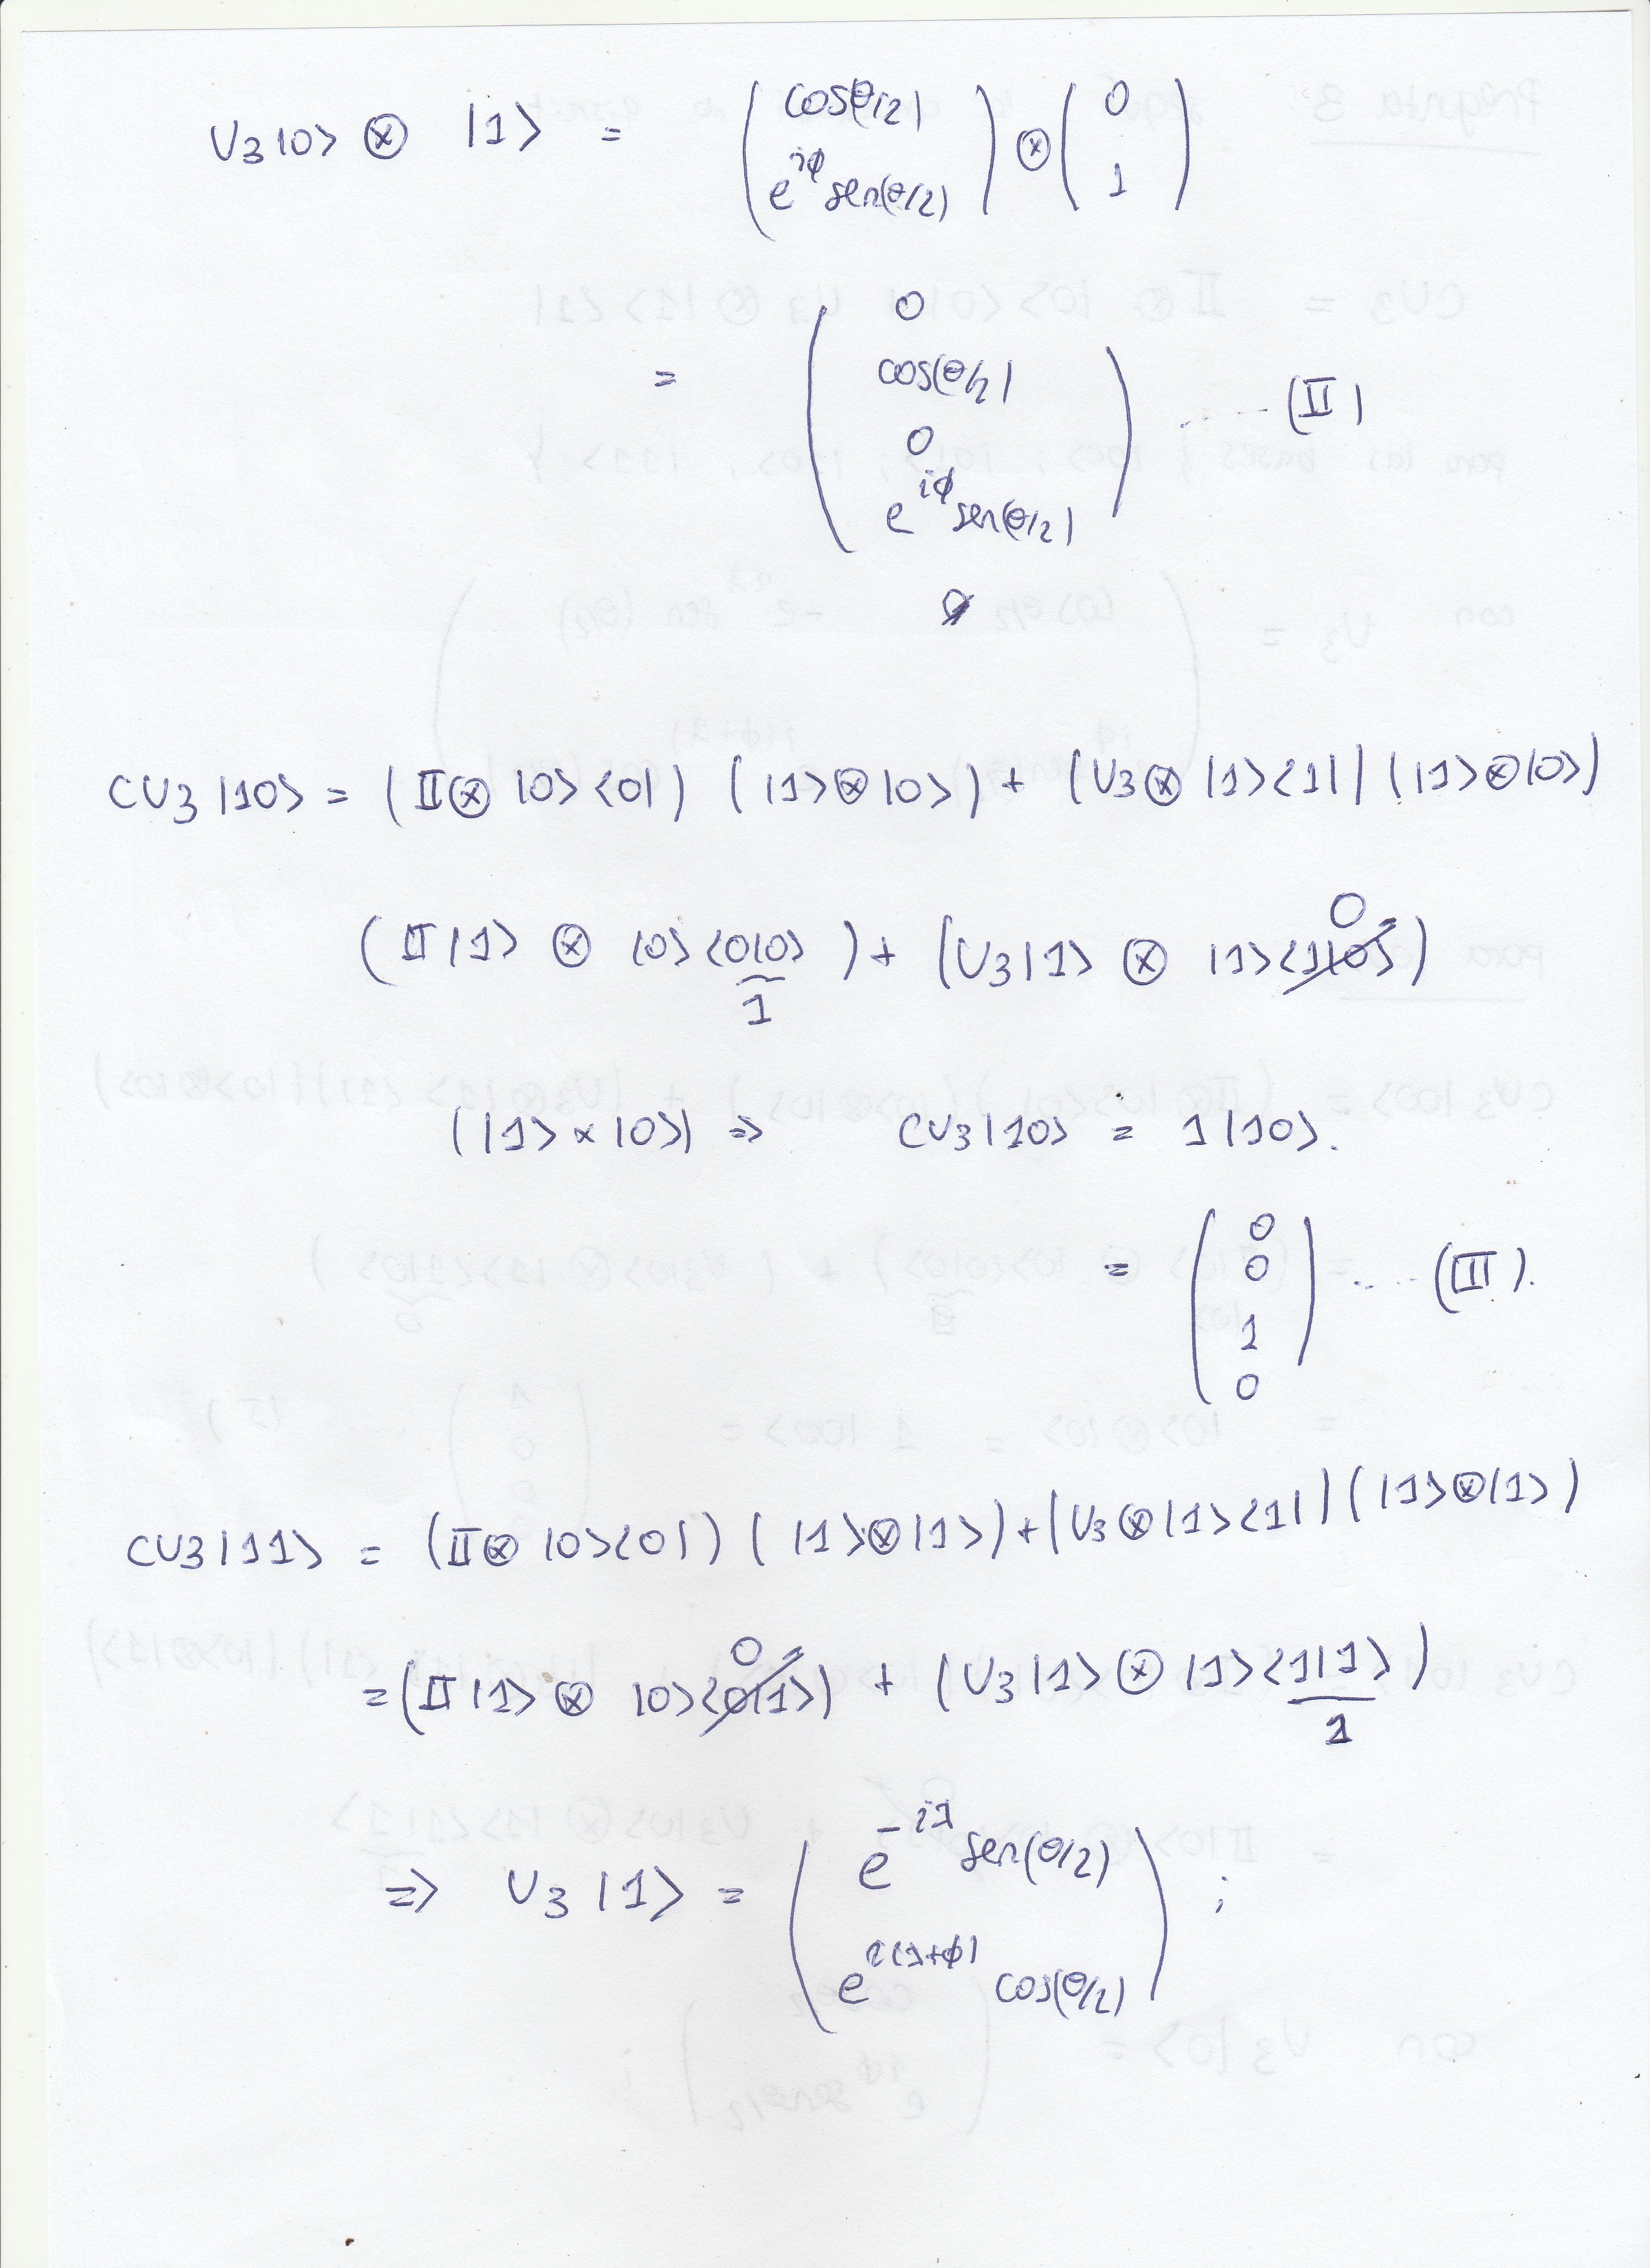 U3|0> ⊗ |1> = ( cos(θ/2) ; e^{iφ} sen(θ/2) ) ⊗ ( 0 ; 1 )
= ( 0 ; cos(θ/2) ; 0 ; e^{iφ} sen(θ/2) ) .... (II)
CU3|10> = (II ⊗ |0><0|) (|1>⊗|0>) + (U3 ⊗ |1><1|) (|1>⊗|0>)
(II|1> ⊗ |0><0|0>) + (U3|1> ⊗ |1><1|0>) 0
1
(|1> × |0>) => CU3|10> = 1|10>.
= ( 0 ; 0 ; 1 ; 0 ) .... (III).
CU3|11> = (II ⊗ |0><0|) (|1>⊗|1>) + (U3 ⊗ |1><1|) (|1>⊗|1>)
= (II|1> ⊗ |0><0|1>) 0 + (U3|1> ⊗ |1><1|1>)
1
=> U3|1> = ( e^{-iλ} sen(θ/2) ; e^{i(λ+φ)} cos(θ/2) ) ;